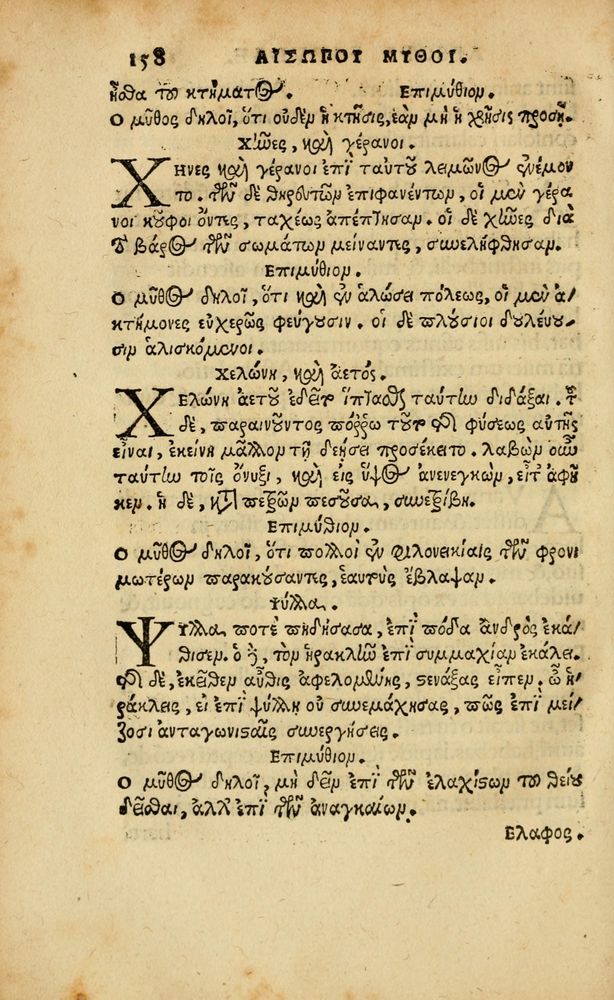 158 ΑΙΣΩΠΟΥ ΜΥΘΟΙ.
ῆσθα τοῦ κτήματος. Ἐπιμύθιον.
Ο μῦθος δηλοῖ, ὅτι οὐδὲν ἡ κτῆσις, ἐὰν μὴ ἡ χρῆσις προσῇ.
Χῆνες, καὶ γέρανοι.
ΧΗΝΕΣ καὶ γέρανοι ἐπὶ ταυτοῦ λειμῶνος ἐνέμον
το. τῶν δὲ θηρευτῶν ἐπιφανέντων, οἱ μὲν γέρα
νοι κοῦφοι ὄντες, ταχέως ἀπέπτησαν. οἱ δὲ χῆνες διὰ
τὸ βάρος τῶν σωμάτων μείναντες, συνελήφθησαν.
Ἐπιμύθιον.
Ο μῦθος δηλοῖ, ὅτι καὶ ἐν ἁλώσει πόλεως, οἱ μὲν ἀ
κτήμονες εὐχερῶς φεύγουσιν. οἱ δὲ πλούσιοι δουλεύου
σιν ἁλισκόμενοι.
Χελώνη, καὶ ἀετός.
ΧΕΛΩΝΗ ἀετοῦ ἐδεῖτο ἵπτασθαι ταύτην διδάξαι. τοῦ
δὲ, παραινοῦντος πόρρω τοῦτο τῆς φύσεως αὐτῆς
εἶναι, ἐκείνη μᾶλλον τῇ δεήσει προσέκειτο. λαβὼν οὖν
ταύτην τοῖς ὄνυξι, καὶ εἰς ὕψος ἀνενεγκὼν, εἶτ' ἀφῆ
κεν. ἡ δὲ, κατὰ πετρῶν πεσοῦσα, συνετρίβη.
Ἐπιμύθιον.
Ο μῦθος δηλοῖ, ὅτι πολλοὶ ἐν φιλονεικίαις τῶν φρονι
μωτέρων παρακούσαντες, ἑαυτοὺς ἔβλαψαν.
Ψύλλα.
ΨΥΛΛΑ ποτὲ πηδήσασα, ἐπὶ πόδα ἀνδρὸς ἐκά
θισεν. ὁ δὲ, τὸν ἡρακλῆν ἐπὶ συμμαχίαν ἐκάλει.
τῆς δὲ, ἐκεῖθεν αὖθις ἀφελομένης, στενάξας εἶπεν. ὦ ἡ
ράκλεις, εἰ ἐπὶ ψύλλῃ οὐ συνεμάχησας, πῶς ἐπὶ μεί
ζοσι ἀνταγωνισταῖς συνεργήσεις.
Ἐπιμύθιον.
Ο μῦθος δηλοῖ, μὴ δεῖν ἐπὶ τῶν ἐλαχίστων τοῦ θείου
δεῖσθαι, ἀλλ' ἐπὶ τῶν ἀναγκαίων.
Ἔλαφος.